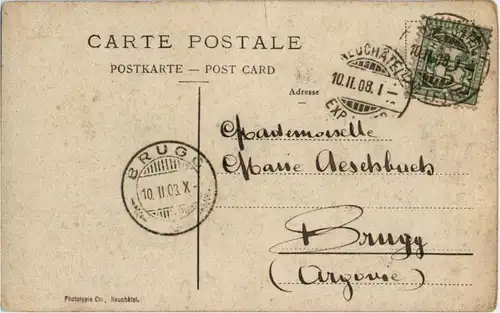 CARTE POSTALE
POSTKARTE — POST CARD
Adresse
NEUCHÂTEL
10.II.08. I
EXP.
10.II.08. I
5
BRUGG
10.II.08. X
Mademoiselle
Marie Aeschbach
Brugg
(Argovie)
Phototypie Co., Neuchâtel.